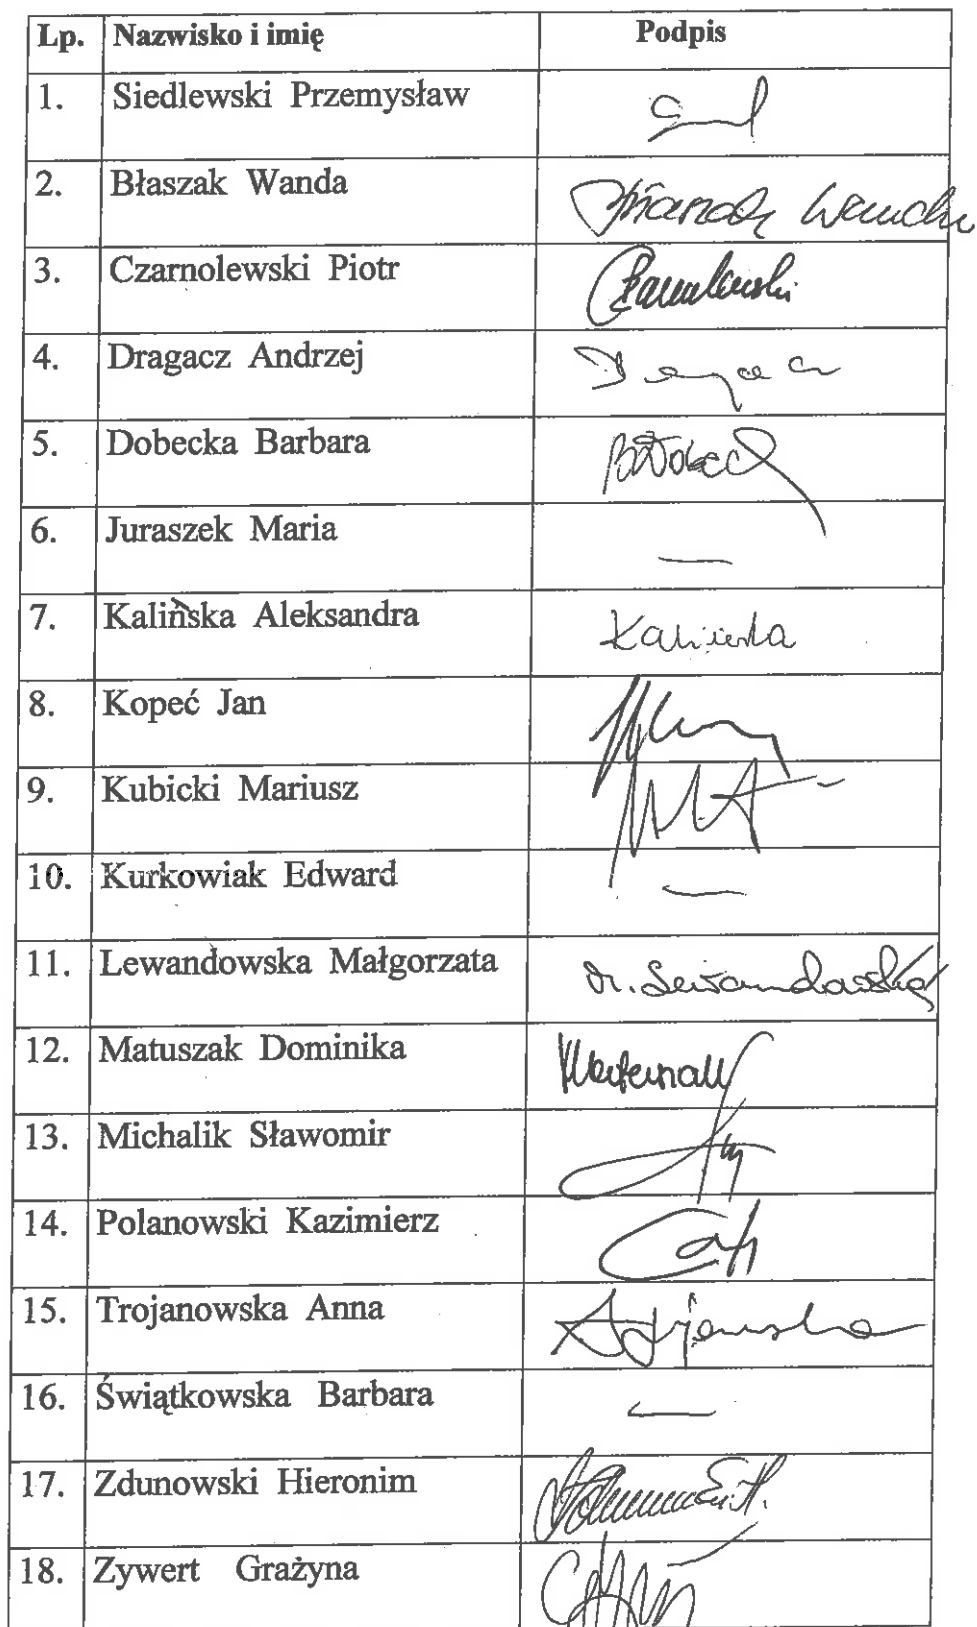 Lp. Nazwisko i imię Podpis
1. Siedlewski Przemysław
2. Błaszak Wanda
3. Czarnolewski Piotr
4. Dragacz Andrzej
5. Dobecka Barbara
6. Juraszek Maria —
7. Kalińska Aleksandra Kalińska
8. Kopeć Jan
9. Kubicki Mariusz
10. Kurkowiak Edward —
11. Lewandowska Małgorzata M. Lewandowska
12. Matuszak Dominika
13. Michalik Sławomir
14. Polanowski Kazimierz
15. Trojanowska Anna
16. Świątkowska Barbara —
17. Zdunowski Hieronim
18. Zywert Grażyna